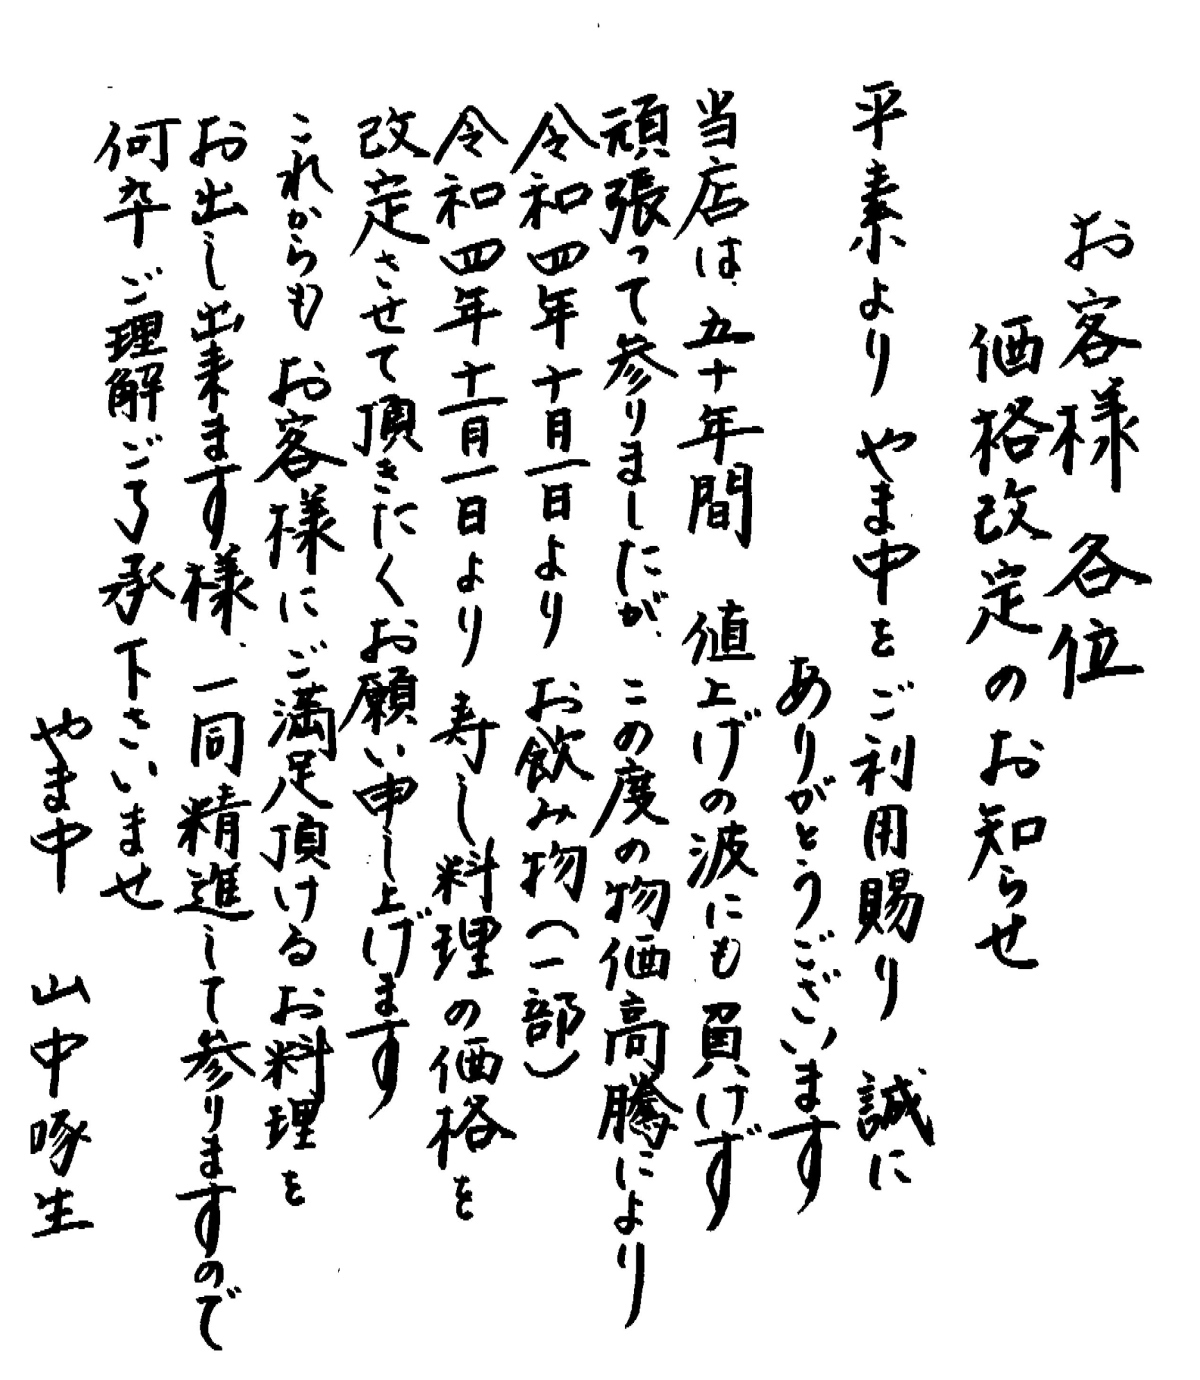 お客様 各位
価格改定のお知らせ
平素より やま中をご利用賜り 誠に
ありがとうございます
当店は、五十年間 値上げの波にも負けず
頑張って参りましたが、この度の物価高騰により
令和四年十月一日より お飲み物(一部)
令和四年十一月一日より 寿し料理の価格を
改定させて頂きたくお願い申し上げます
これからも お客様にご満足頂けるお料理を
お出し出来ます様、一同精進して参りますので
何卒ご理解ご了承下さいませ
やま中 山中啄生